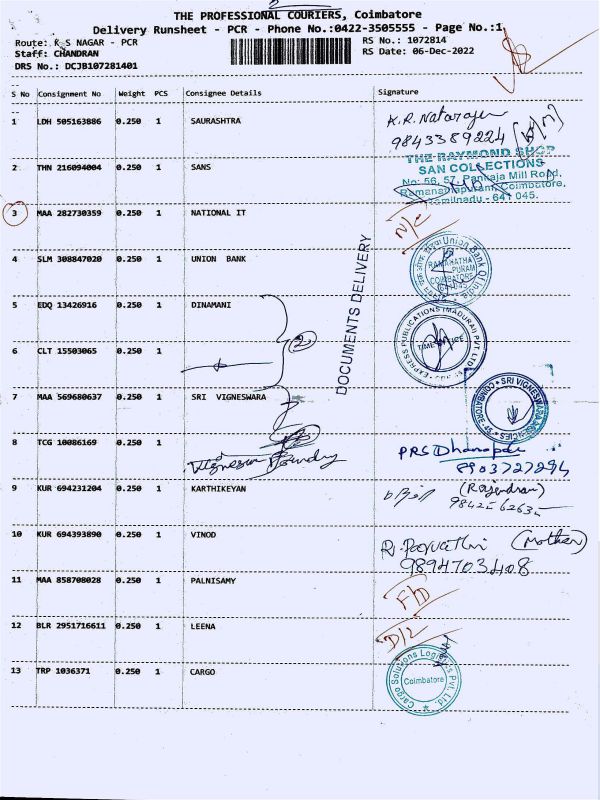 2
THE PROFESSIONAL COURIERS, Coimbatore
Delivery Runsheet - PCR - Phone No.:0422-3505555 - Page No.:1
Route: K S NAGAR - PCR
RS No.: 1072814
Staff: CHANDRAN
RS Date: 06-Dec-2022
DRS No.: DCJB107281401
S No Consignment No Weight PCS Consignee Details Signature
1 LDH 505163886 0.250 1 SAURASHTRA K.R. Natarajan
9843389224
THE RAYMOND SHOP
2 THN 216094004 0.250 1 SANS SAN COLLECTIONS
No: 56, 57, Pankaja Mill Road,
Ramanathapuram, Coimbatore,
Tamilnadu - 641 045.
3 MAA 282730359 0.250 1 NATIONAL IT N/C
DOCUMENTS DELIVERY
4 SLM 308847020 0.250 1 UNION BANK Union Bank Of India
RAMANATHA
PURAM
COIMBATORE
5 EDQ 13426916 0.250 1 DINAMANI
EXPRESS PUBLICATIONS (MADURAI) PVT. LTD
TIME OFFICE
2
6 CLT 15503065 0.250 1
7 MAA 569680637 0.250 1 SRI VIGNESWARA
SRI VIGNESWARA AGENCIES
COIMBATORE-45
8 TCG 10086169 0.250 1
Vignesh Foundry
PRS Dhanapal
8903727294
9 KUR 694231204 0.250 1 KARTHIKEYAN (Rajendran)
10 KUR 694393890 0.250 1 VINOD R. Parvathi (Mother)
9894703408
11 MAA 858708028 0.250 1 PALNISAMY F/D
12 BLR 2951716611 0.250 1 LEENA D/L
13 TRP 1036371 0.250 1 CARGO
Cargo Solutions Logistics Pvt. Ltd.
Coimbatore